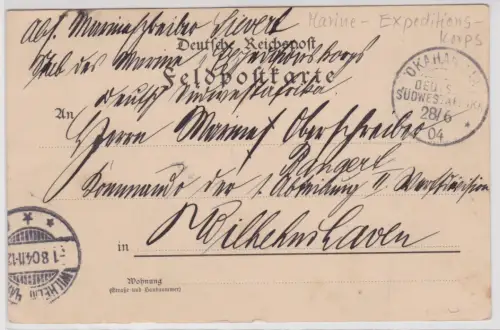 Abs. Marineschreiber Sievert
Marine-Expeditions-
Korps
Deutsche Reichspost
Stab des Marine Expeditionskorps
Feldpostkarte
Deutsch Südwestafrika
OKAHANDJA
DEUTSCH-
SÜDWESTAFRIKA
28/6
04
An
Herrn Marine Oberschreiber
Bangert
Kommando der 1. Abteilung II. Werftdivision
in Wilhelmshaven
WILHELMSHAVEN
1.8.04.11-12
Wohnung
(Straße und Hausnummer)